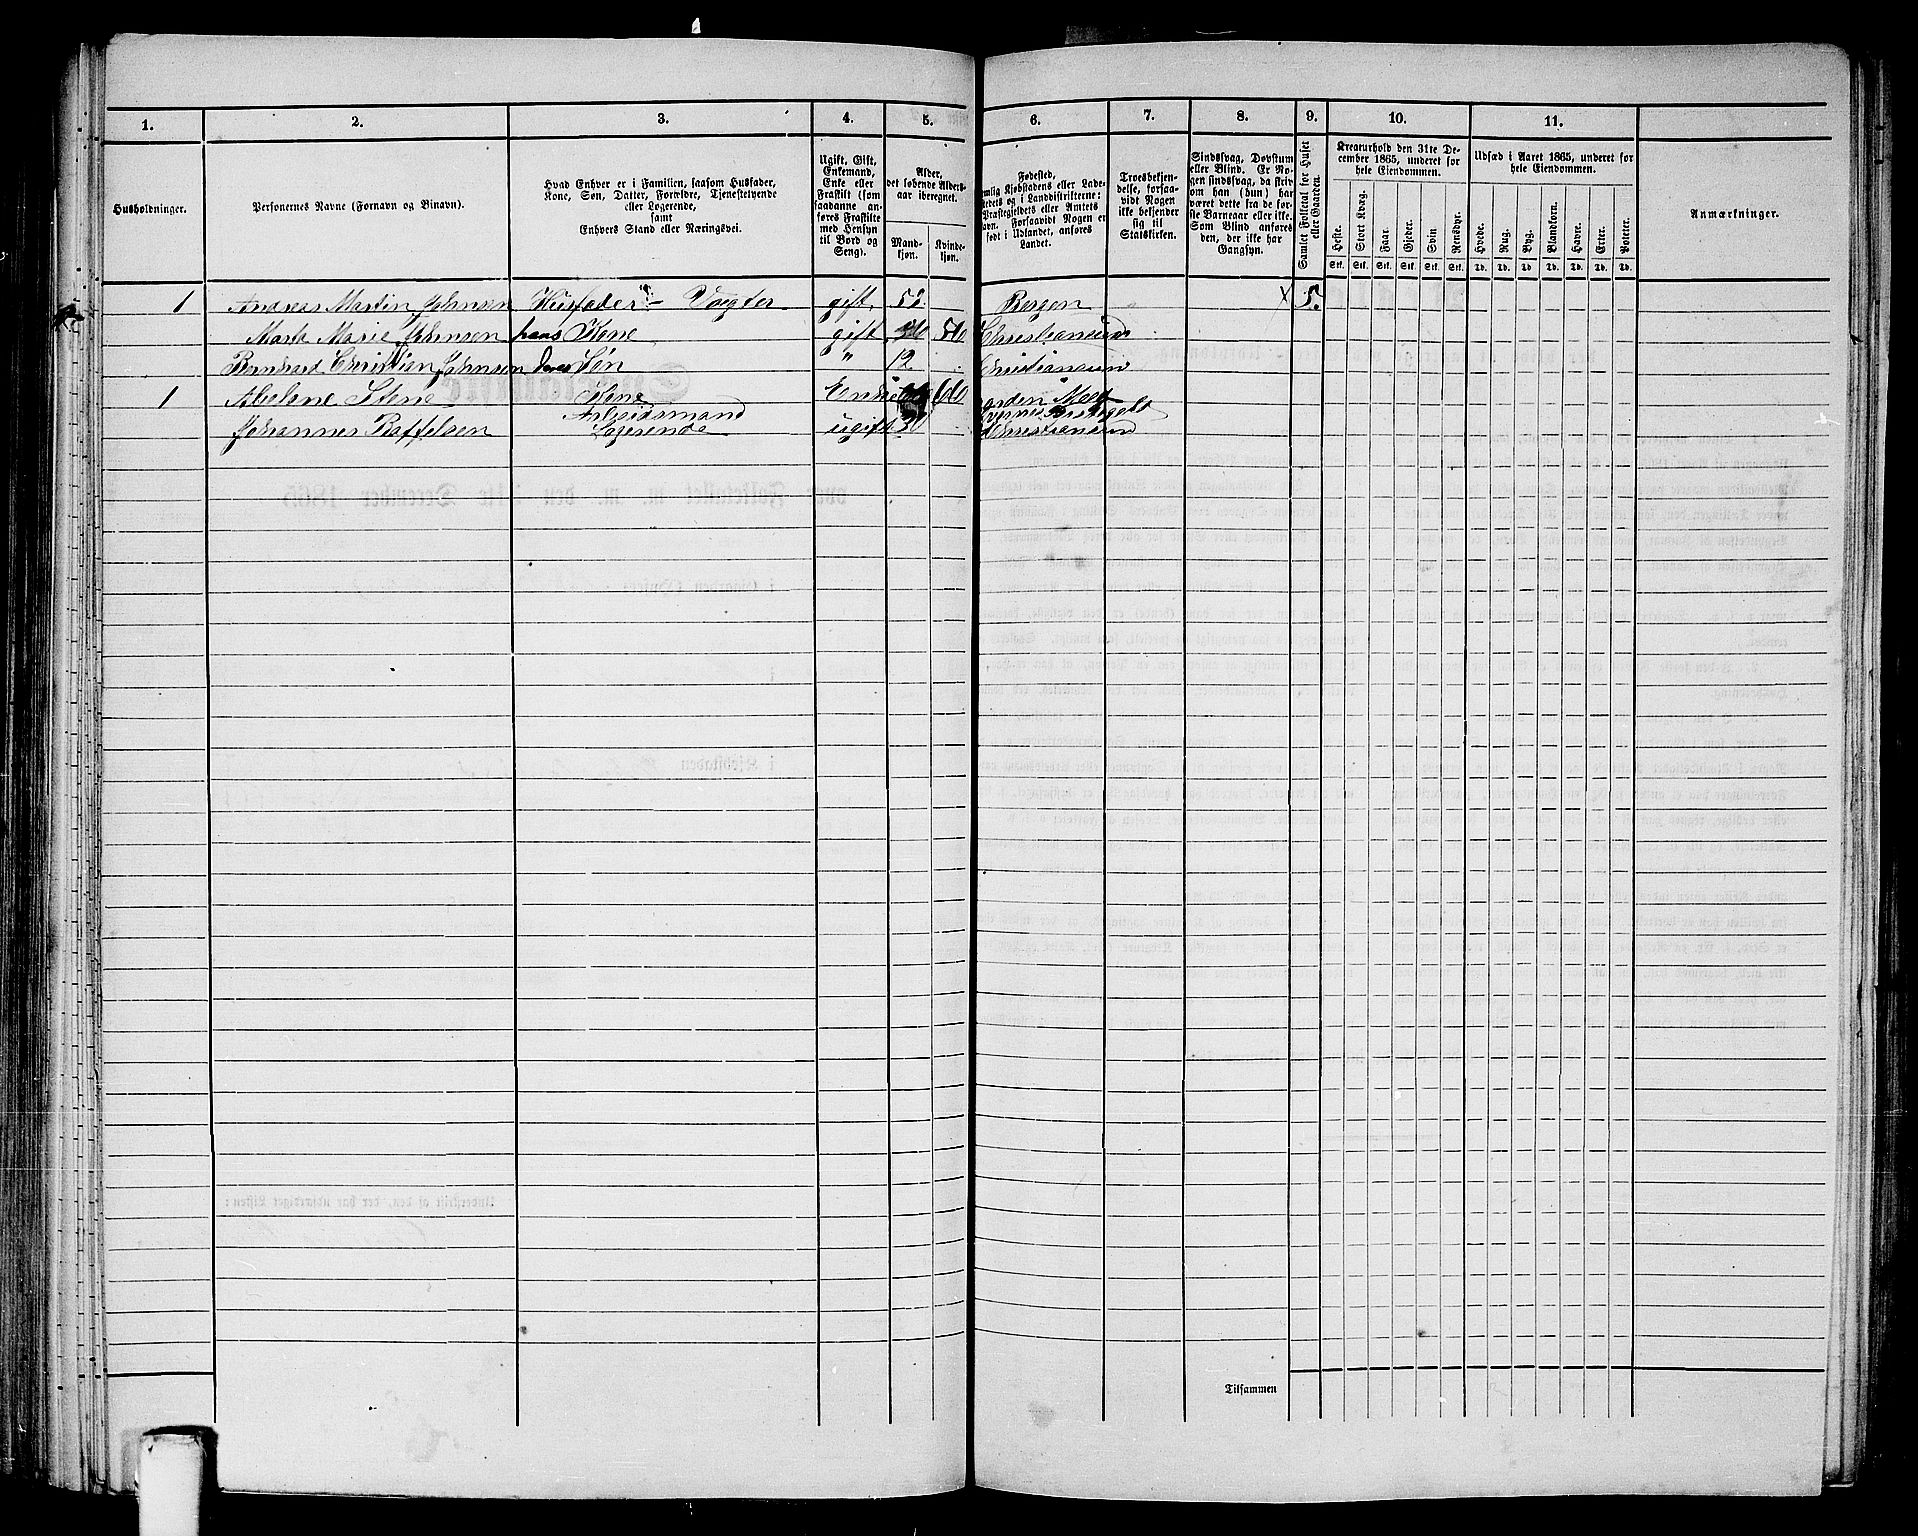 1. 2. 3. 4. 5. 6. 7. 8. 9. 10. 11.
Husholdninger.
Personernes Navne (Fornavn og Binavn).
Hvad Enhver er i Familien, saasom Husfader,
Kone, Søn, Datter, Forældre, Tjenestetyende
eller Logerende,
samt
Enhvers Stand eller Næringsvei.
Ugift, Gift,
Enkemand,
Enke eller
Fraskilt (som
saadanne an-
føres Fraskilte
med Hensyn
til Bord og
Seng).
Alder,
det løbende Alders-
aar iberegnet.
Mand-
kjøn.
Kvinde-
kjøn.
Fødested,
nemlig Kjøbstadens eller Lade-
stedets og i Landdistrikterne:
Præstegjeldets eller Amtets
Navn. Forsaavidt Nogen er
født i Udlandet, anføres
Landet.
Troesbekjen-
delse, forsaa-
vidt Nogen
ikke bekjender
sig til
Statskirken.
Sindssvag, Døvstum
eller Blind. Er No-
gen sindssvag, da skriv
om han (hun) har
været dette fra de før-
ste Barneaar eller ikke.
Som Blind anføres
den, der ikke har
Gangsyn.
Samlet Folketal for Huset
eller Gaarden.
Kreaturhold den 31te De-
cember 1865, underet for
hele Eiendommen.
Heste. Stort Kvæg. Faar. Gjeder. Svin. Rensdyr.
Stk. Stk. Stk. Stk. Stk. Stk.
Udsæd i Aaret 1865, underet for
hele Eiendommen.
Hvede. Rug. Byg. Blandkorn. Havre. Erter. Poteter.
Td. Td. Td. Td. Td. Td. Td.
Anmærkninger.
1 Andreas Martin Johnsen Husfader - Vægter gift 52 Bergen x 5.
Marie Johnsen hans Kone gift 50 Christiansund
Christian Johnsen deres Søn " 12 Christiansund
1 Abelene Stene Kone Enke 60
Johannes Raffelsen Arbeidsmand
Logerende ugift 30 Christiansund
Tilsammen